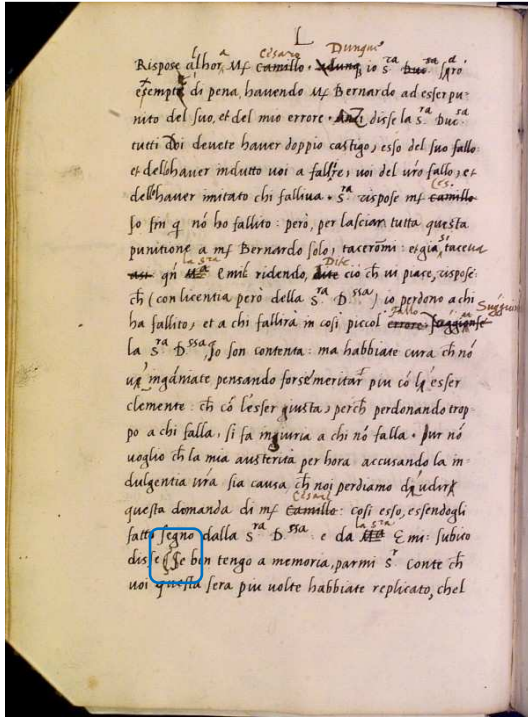 L
Rispose alhora Mſ Camillo Cesare · Adunq Dunque io S.ra Duc.sa sarò
esempio di pena, havendo Mſ Bernardo ad esser pu-
nito del suo, et del mio errore · Anzi disse la S.ra Duc.sa
tutti Doi devete haver doppio castigo, esso del suo fallo
et dell haver indutto voi a fallire, voi del vro fallo, et
dell haver imitato chi falliva · S.ra rispose mſ Camillo Ces.
Io fin q nó ho fallito : però, per lasciar tutta questa
punitione a mſ Bernardo solo, taceromi : et già si taceva
qñ la S.ra Emil ridendo, dite Dite ciò ch vi piace, rispose :
ch (con licentia però della S.ra D.ssa) io perdono a chi
ha fallito, et a chi fallirà in cosi piccol errore fallo
la S.ra D.ssa, Io son contenta : ma habbiate cura ch nó
v' ingániate pensando forse meritar piu có l esser
clemente : ch có l'esser giusta, perch perdonando trop
po a chi falla, si fa ingiuria a chi nó falla · Pur nó
voglio ch la mia austerità per hora accusando la in-
dulgentia vrá sia causa ch noi perdiamo d'udire
questa domanda di mſ Camillo Cesare : cosi esso, essendogli
fatto segno dalla S.ra D.ssa : e da la S.ra Emi : subito
disse Se ben tengo a memoria, parmi S.r Conte ch
voi questa sera piu volte habbiate replicato, chel